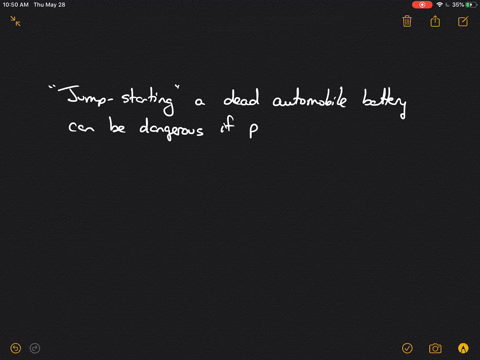 10:50 AM Thu May 28
35%
"Jump-starting" a dead automobile battery
can be dangerous if p